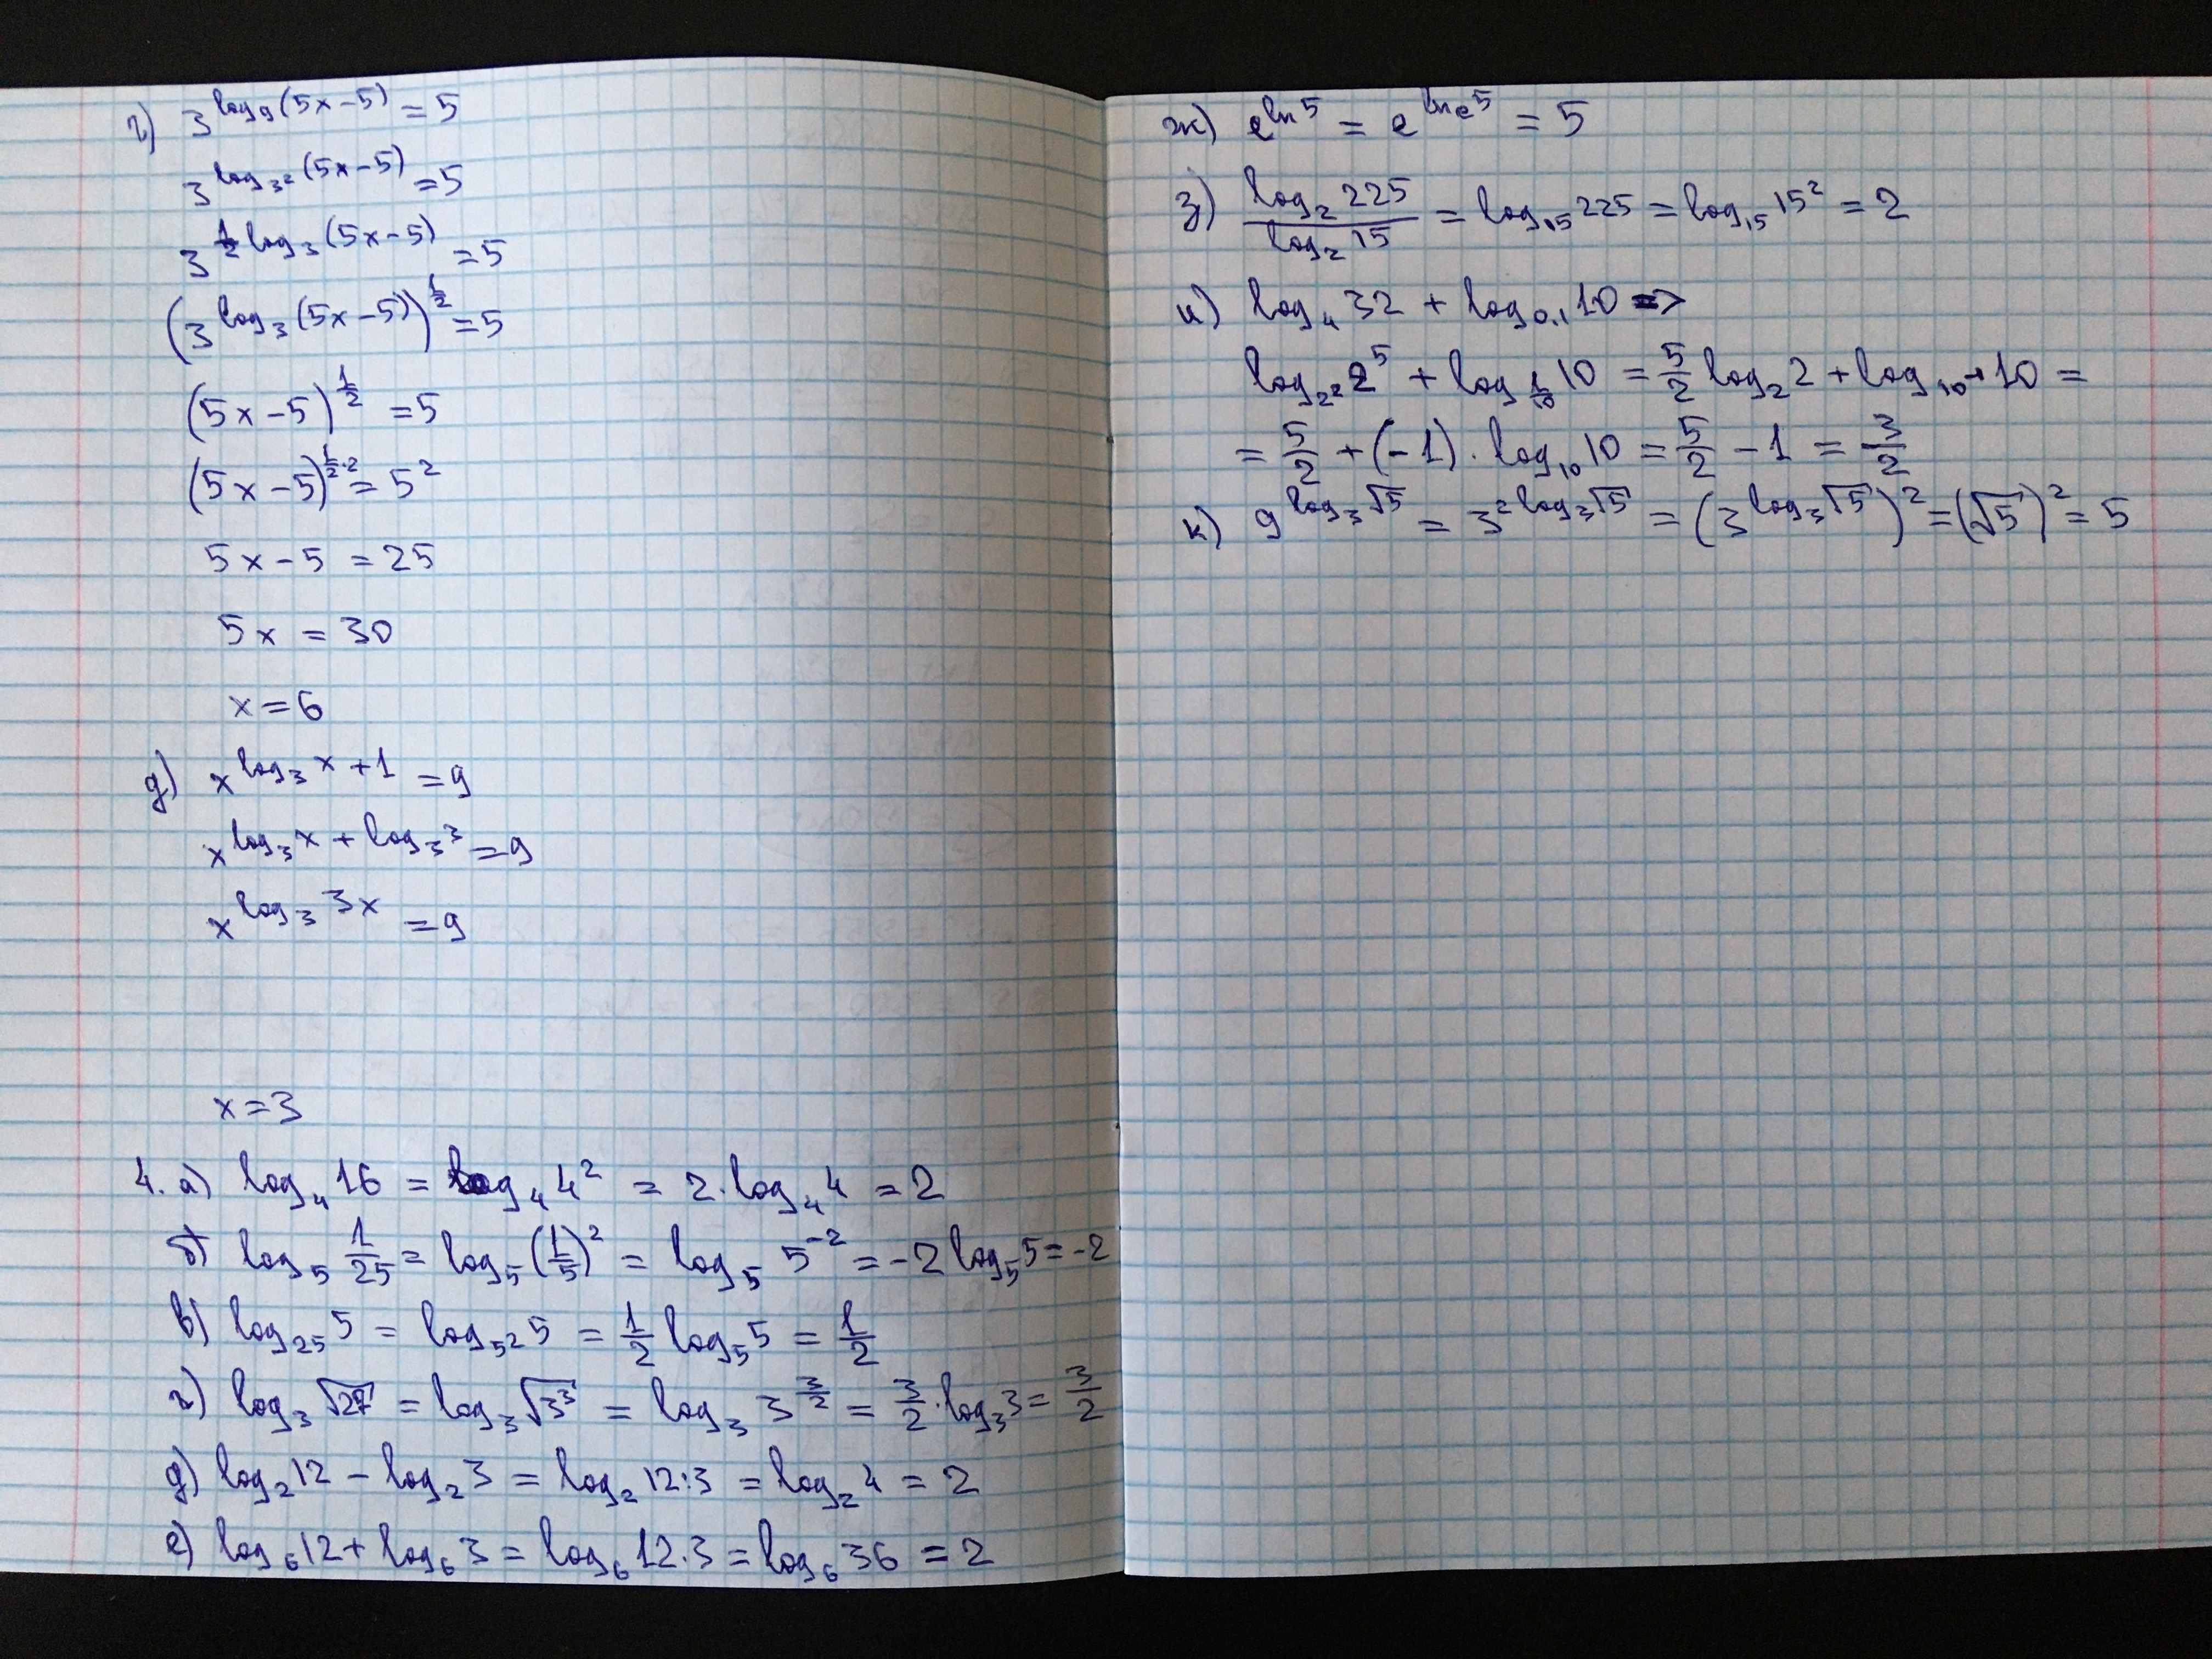 г) 3^{log_9(5x-5)} = 5
3^{log_{3^2}(5x-5)} = 5
3^{\frac{1}{2}log_3(5x-5)} = 5
(3^{log_3(5x-5)})^{\frac{1}{2}} = 5
(5x-5)^{\frac{1}{2}} = 5
(5x-5)^{\frac{1}{2}·2} = 5^2
5x-5 = 25
5x = 30
x = 6
д) x^{log_3 x + 1} = 9
x^{log_3 x + log_3 3} = 9
x^{log_3 3x} = 9
x = 3
4. а) log_4 16 = log_4 4^2 = 2·log_4 4 = 2
б) log_5 \frac{1}{25} = log_5 (\frac{1}{5})^2 = log_5 5^{-2} = -2 log_5 5 = -2
в) log_{25} 5 = log_{5^2} 5 = \frac{1}{2} log_5 5 = \frac{1}{2}
г) log_3 √27 = log_3 √3^3 = log_3 3^{\frac{3}{2}} = \frac{3}{2}·log_3 3 = \frac{3}{2}
д) log_2 12 - log_2 3 = log_2 12:3 = log_2 4 = 2
е) log_6 12 + log_6 3 = log_6 12·3 = log_6 36 = 2
ж) e^{ln 5} = e^{ln_e 5} = 5
з) \frac{log_2 225}{log_2 15} = log_{15} 225 = log_{15} 15^2 = 2
и) log_4 32 + log_{0.1} 10 =>
log_{2^2} 2^5 + log_{\frac{1}{10}} 10 = \frac{5}{2} log_2 2 + log_{10^{-1}} 10 =
= \frac{5}{2} + (-1)·log_{10} 10 = \frac{5}{2} - 1 = \frac{3}{2}
к) 9^{log_3 √5} = 3^{2 log_3 √5} = (3^{log_3 √5})^2 = (√5)^2 = 5